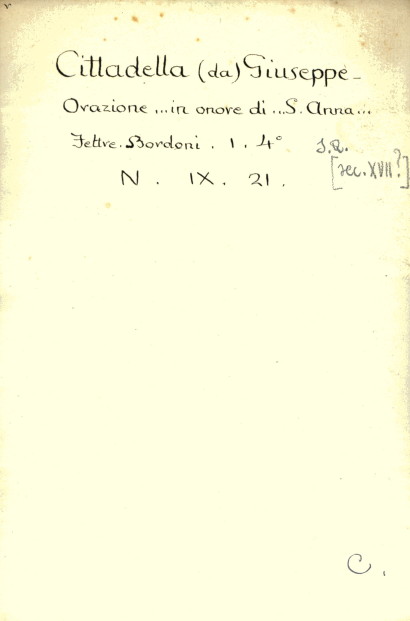 Cittadella (da) Giuseppe
Orazione ... in onore di ... S. Anna ...
Feltre. Bordoni. 1. 4°
[sec. XVII?]
N. IX. 21.
C.